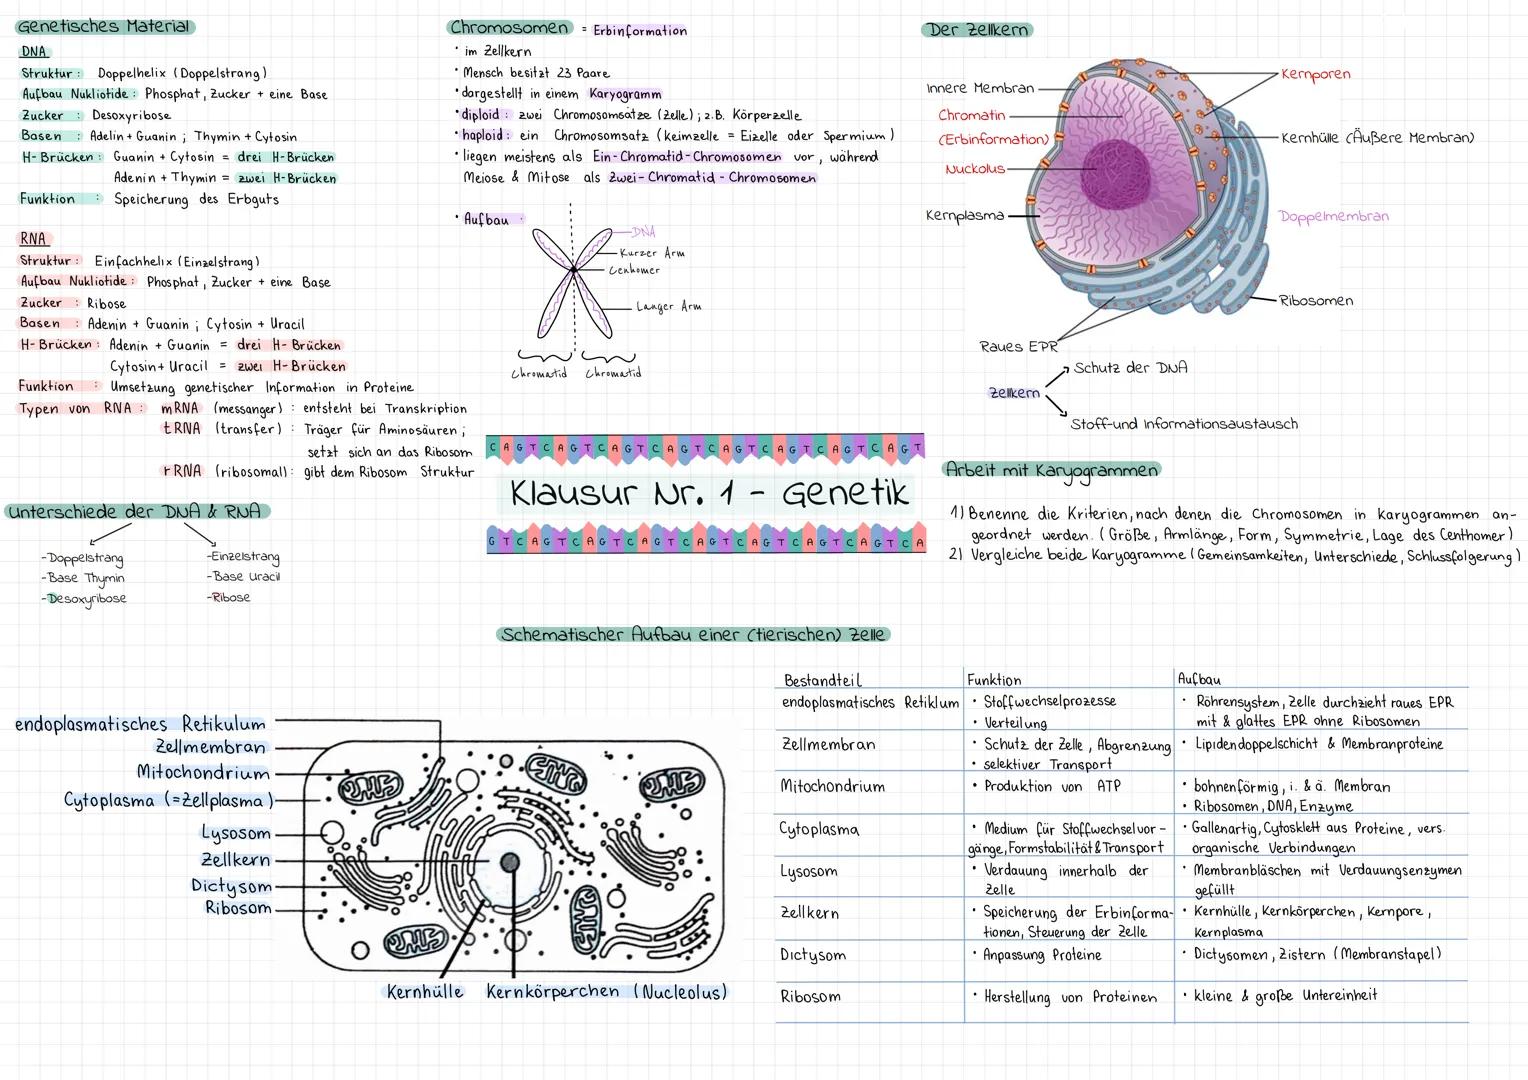 Genetisches Material
DNA
Struktur : Doppelhelix (Doppelstrang)
Aufbau Nukliotide : Phosphat, Zucker + eine Base
Zucker : Desoxyribose
Basen : Adelin + Guanin ; Thymin + Cytosin
H-Brücken : Guanin + Cytosin = drei H-Brücken
Adenin + Thymin = zwei H-Brücken
Funktion : Speicherung des Erbguts
RNA
Struktur : Einfachhelix (Einzelstrang)
Aufbau Nukliotide : Phosphat, Zucker + eine Base
Zucker : Ribose
Basen : Adenin + Guanin ; Cytosin + Uracil
H-Brücken : Adenin + Guanin = drei H-Brücken
Cytosin + Uracil = zwei H-Brücken
Funktion : Umsetzung genetischer Information in Proteine
Typen von RNA : mRNA (messanger) : entsteht bei Transkription
tRNA (transfer) : Träger für Aminosäuren ;
setzt sich an das Ribosom
rRNA (ribosomal) : gibt dem Ribosom Struktur
Unterschiede der DNA & RNA
-Doppelstrang
-Base Thymin
-Desoxyribose
-Einzelstrang
-Base Uracil
-Ribose
Chromosomen = Erbinformation
• im Zellkern
• Mensch besitzt 23 Paare
• dargestellt in einem Karyogramm
• diploid : zwei Chromosomsätze (Zelle) ; z.B. Körperzelle
• haploid : ein Chromosomsatz (keimzelle = Eizelle oder Spermium)
• liegen meistens als Ein-Chromatid-Chromosomen vor, während
Meiose & Mitose als Zwei-Chromatid-Chromosomen
• Aufbau :
DNA
Kurzer Arm
Centromer
Langer Arm
Chromatid Chromatid
C A G T C A G T C A G T C A G T C A G T C A G T C A G T
Klausur Nr. 1 - Genetik
G T C A G T C A G T C A G T C A G T C A G T C A G T C A
Der Zellkern
Innere Membran
Chromatin
(Erbinformation)
Nuckolus
Kernplasma
Kernporen
Kernhülle (Äußere Membran)
Doppelmembran
Ribosomen
Raues EPR
Zellkern
Schutz der DNA
Stoff-und Informationsaustausch
Arbeit mit Karyogrammen
1) Benenne die Kriterien, nach denen die Chromosomen in Karyogrammen an-
geordnet werden. (Größe, Armlänge, Form, Symmetrie, Lage des Centhomer)
2) Vergleiche beide Karyogramme (Gemeinsamkeiten, Unterschiede, Schlussfolgerung)
Schematischer Aufbau einer (tierischen) Zelle
endoplasmatisches Retikulum
Zellmembran
Mitochondrium
Cytoplasma (=Zellplasma)
Lysosom
Zellkern
Dictysom
Ribosom
Kernhülle Kernkörperchen (Nucleolus)
Bestandteil Funktion Aufbau
endoplasmatisches Retiklum • Stoffwechselprozesse • Röhrensystem, Zelle durchzieht raues EPR
• Verteilung mit & glattes EPR ohne Ribosomen
Zellmembran • Schutz der Zelle, Abgrenzung • Lipidendoppelschicht & Membranproteine
• selektiver Transport
Mitochondrium • Produktion von ATP • bohnenförmig, i. & ä. Membran
• Ribosomen, DNA, Enzyme
Cytoplasma • Medium für Stoffwechselvor- • Gallenartig, Cytosklett aus Proteine, vers.
gänge, Formstabilität & Transport organische Verbindungen
Lysosom • Verdauung innerhalb der • Membranbläschen mit Verdauungsenzymen
Zelle gefüllt
Zellkern • Speicherung der Erbinforma- • Kernhülle, Kernkörperchen, Kernpore,
tionen, Steuerung der Zelle Kernplasma
Dictysom • Anpassung Proteine • Dictysomen, Zistern (Membranstapel)
Ribosom • Herstellung von Proteinen • kleine & große Untereinheit